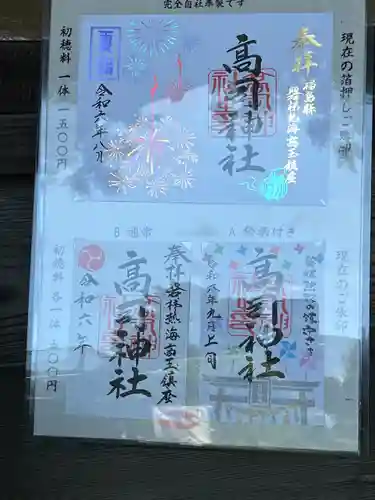 完全自社奉製です
現在の箔押しご朱印
奉拝
福島縣
磐梯熱海高玉鎮座
高司神社
夏詣
令和六年八月
初穂料 一体 一五〇〇円
現在のご朱印
A 絵柄付き
高司神社
令和六年九月上旬
B 通常
奉拝
磐梯熱海高玉鎮座
高司神社
令和六年
初穂料 各一体 五〇〇円